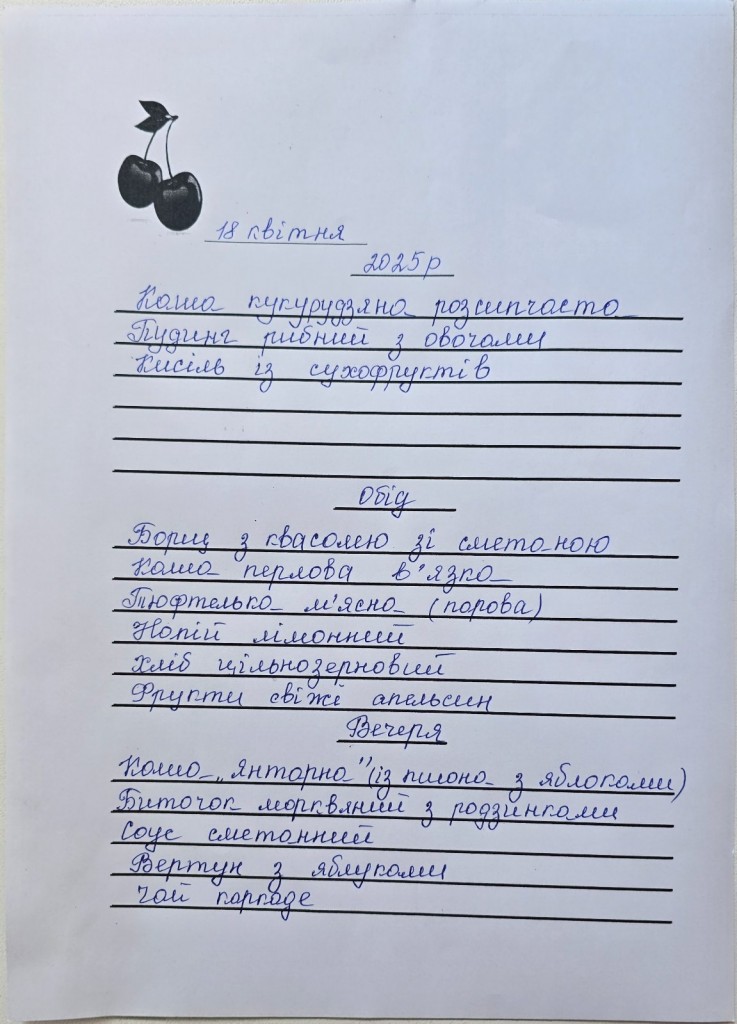 18 квітня
2025р
Каша кукурудзяна розсипчаста
Пудинг рибний з овочами
Кисіль із сухофруктів
Обід
Борщ з квасолею зі сметаною
Каша перлова в'язка
Тюфтелька м'ясна (парова)
Напій лімонний
Хліб цільнозерновий
Фрукти свіжі апельсин
Вечеря
Каша „Янтарна" (із пшона з яблоками)
Биточок морквяний з родзинками
Соус сметанний
Вертун з яблуками
Чай каркаде